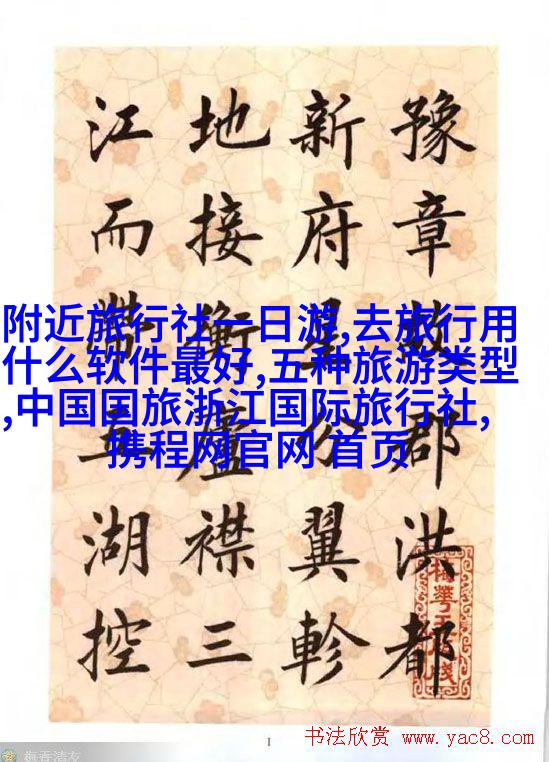 豫章故郡洪都
新府星分翼軫
地接衡廬襟三
江而帶五湖控
附近旅行社一日游,去旅行用
什么软件最好,五种旅游类型
,中国国旅浙江国际旅行社,
携程网官网 首页
1
书法欣赏 www.yac8.com